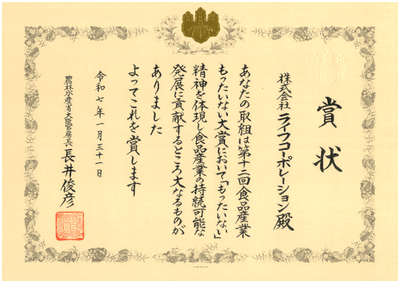 賞状
株式会社 ライフコーポレーション殿
あなたの取組は第十二回食品産業
もったいない大賞において「もったいない」
精神を体現し食品産業の持続可能な
発展に貢献するところ大なるものが
ありました
よってこれを賞します
令和七年一月三十一日
農林水産省大臣官房長 長井俊彦